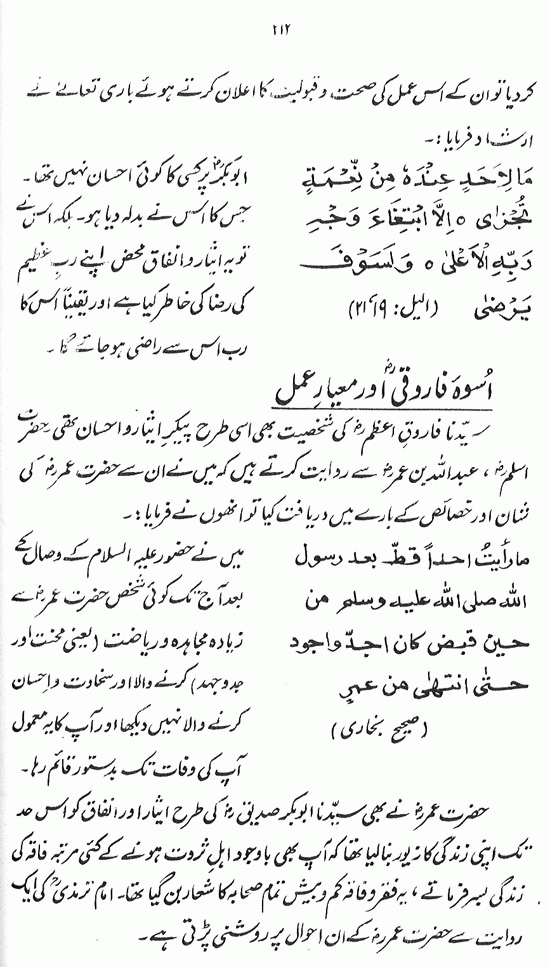 ۲۱۲
کر دیا تو ان کے اس عمل کی صحت و قبولیت کا اعلان کرتے ہوئے باری تعالےٰ نے
ارشاد فرمایا :۔
مَا لِاَحَدٍ عِنْدَہٗ مِنْ نِّعْمَۃٍ
تُجْزٰی ہ اِلَّا ابْتِغَاءَ وَجْہِ
رَبِّہِ الْاَعْلٰی ہ وَ لَسَوْفَ
یَرْضٰی (الیل: ۱۹ تا ۲۱)
ابوبکرؓ پر کسی کا کوئی احسان نہیں تھا۔
جس کا اس نے بدلہ دیا ہو۔ بلکہ اس نے
تو یہ ایثار و انفاق محض اپنے ربِ عظیم
کی رضا کی خاطر کیا ہے اور یقیناً اس کا
رب اس سے راضی ہو جائے گا۔
اُسوۂ فاروقیؓ اور معیارِ عمل
سیّدنا فاروقِ اعظمؓ کی شخصیت بھی اسی طرح پیکرِ ایثار و احسان تھی حضرت
اسلمؓ، عبداللہ بن عمرؓ سے روایت کرتے ہیں کہ میں نے ان سے حضرت عمرؓ کی
شان اور خصائص کے بارے میں دریافت کیا تو انھوں نے فرمایا :۔
ما رأیتُ احداً قطّ بعد رسول
اللہ صلی اللہ علیہ وسلم من
حین قبض کان اجدّ واجود
حتّٰی انتھٰی من عمرِ
(صحیح بخاری)
میں نے حضور علیہ السلام کے وصال کے
بعد آج تک کوئی شخص حضرت عمرؓ سے
زیادہ مجاہدہ و ریاضت (یعنی محنت اور
جدوجہد) کرنے والا اور سخاوت و احسان
کرنے والا نہیں دیکھا اور آپ کا یہ معمول
آپ کی وفات تک بدستور قائم رہا۔
حضرت عمرؓ نے بھی سیّدنا ابوبکر صدیقؓ کی طرح ایثار اور انفاق کو اس حد
تک اپنی زندگی کا زیور بنا لیا تھا کہ آپ بھی باوجود اہلِ ثروت ہونے کے کئی مرتبہ فاقہ کی
زندگی بسر فرماتے، یہ فقر و فاقہ کم و بیش تمام صحابہ کا شعار بن گیا تھا۔ امام ترمذیؒ کی ایک
روایت سے حضرت عمرؓ کے ان احوال پر روشنی پڑتی ہے۔